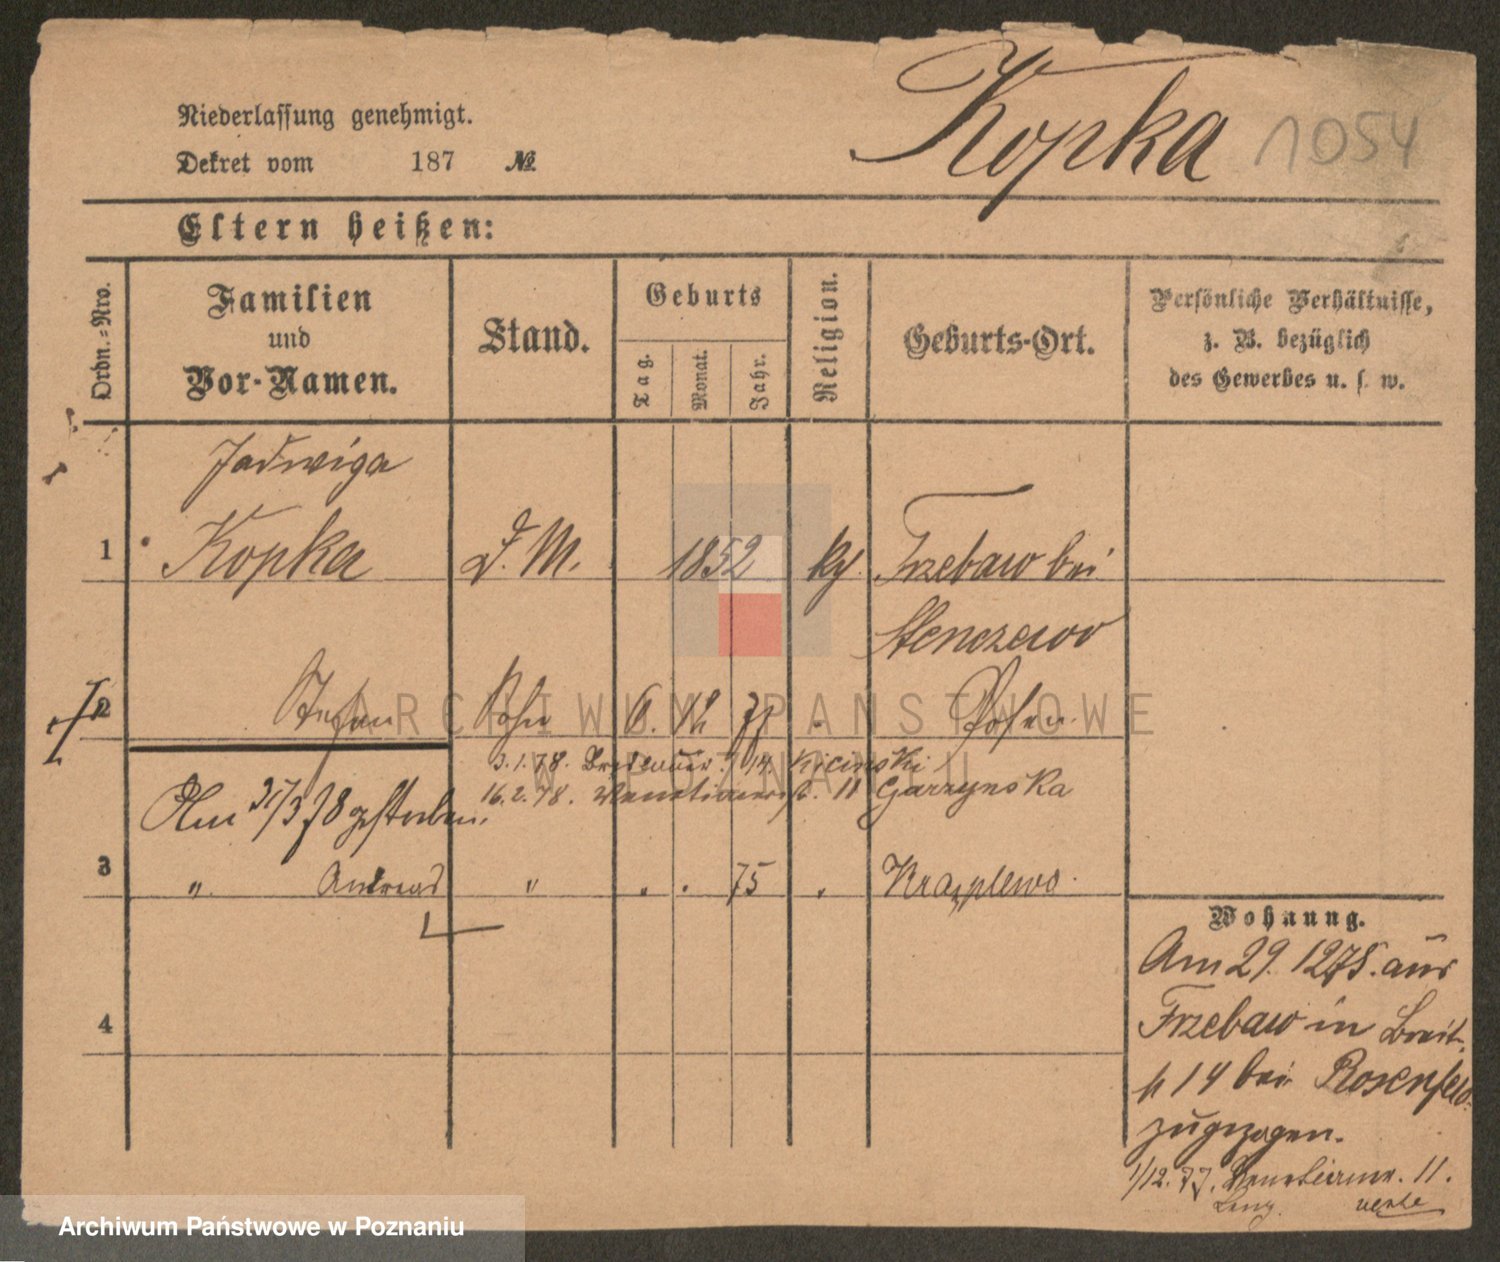 Niederlassung genehmigt.
Dekret vom 187 №
Kopka 1054
Eltern heißen:
Ordn.-Nro.
Familien
und
Vor-Namen.
Stand.
Geburts
Tag.
Monat.
Jahr.
Religion.
Geburts-Ort.
Persönliche Verhältnisse,
z. B. bezüglich
des Gewerbes u. s. w.
Jadwiga
1 Kopka D. M. 1852 Trzebaw bei
Stenczewo
2 Stefan Sohn 6. 12 77 " Posen
3.1.78. Breslauer. 14. Kicinski
16.2.78. Venetianerstr. 11 Garzynska
Am 31/3 78 gestorben.
3 " Andreas " " " 75 " Krązplewo.
Wohnung.
Am 29. 12 75. aus
Trzebaw in Breit-
str 14 bei Rosenfeld
zugezogen.
4
1/12. 77. Venetianer. 11.
ARCHIWUM PAŃSTWOWE
W POZNANIU
Archiwum Państwowe w Poznaniu